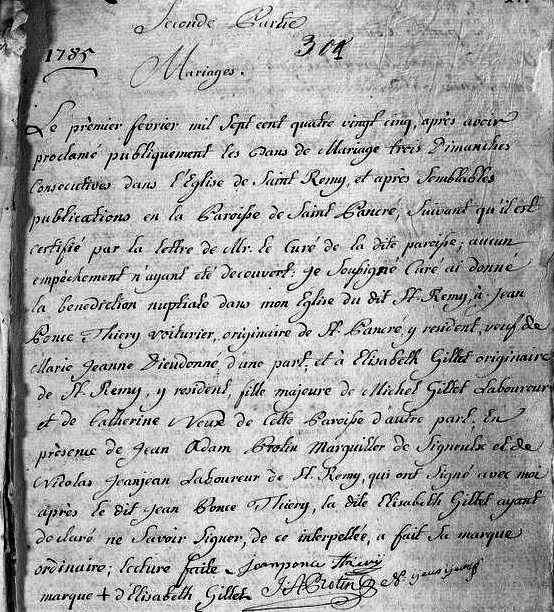 Seconde Partie
1785 304
Mariages.
Le prèmier fevrier mil Sept cent quatre vingt cinq, après avoir
proclamé publiquement les bans de Mariage trois Dimanches
Consecutives dans l'Eglise de Saint Remy, et après Semblables
publications en la Paroisse de Saint Pancré, Suivant qu'il est
certifié par la lettre de Mr. le Curé de la dite paroisse; aucun
empêchement n'ayant eté decouvert: je Soussigné Curé ai donné
la benediction nuptiale dans mon Eglise du dit St. Remy, à Jean
Ponce Thiery voiturier, originaire de St. Pancré y resident, veuf de
Marie Jeanne Dieudonné, d'une part, et à Elisabeth Gillet originaire
de St. Remy, y resident, fille majeure de Michel Gillet Laboureur
et de Catherine Neux de Cette Paroisse d'autre part, En
présence de Jean Adam Protin Marguiller de Signeulx et de
Nicolas Jeanjean Laboureur de St. Remy, qui ont Signé avec moi
après le dit Jean Ponce Thiery, la dite Elisabeth Gillet ayant
declaré ne Savoir Signer, de ce interpellée, a fait Sa marque
ordinaire; lecture faite. Jean ponce thiery
marque + d'Elisabeth Gillet. J: A Protin N. jean jean